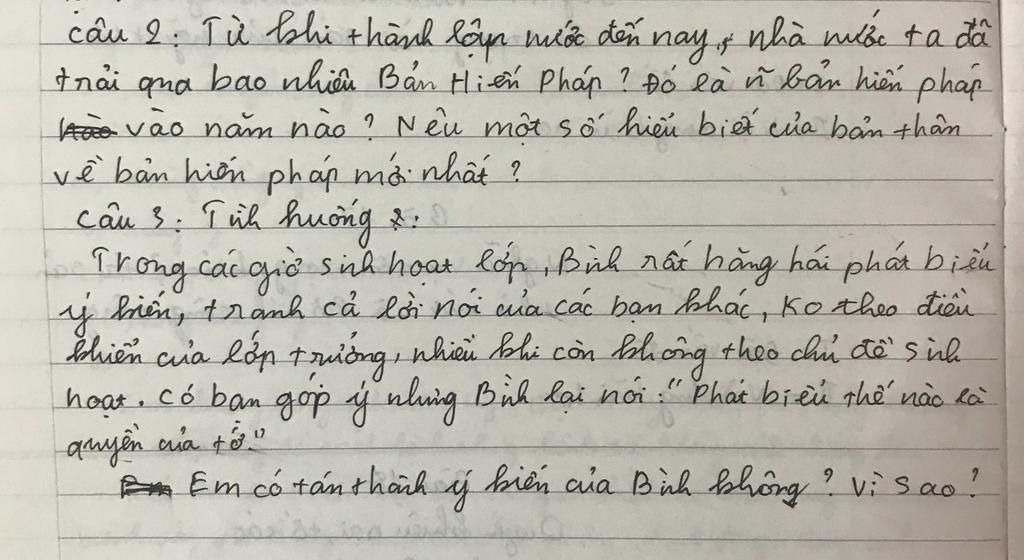 Câu 2: Từ khi thành lập nước đến nay, nhà nước ta đã
trải qua bao nhiêu Bản Hiến Pháp? Đó là ~ bản hiến pháp
vào năm nào? Nêu một số hiểu biết của bản thân
về bản hiến pháp mới nhất?
Câu 3: Tình huống:
Trong các giờ sinh hoạt lớp, Bình rất hăng hái phát biểu
ý kiến, tranh cả lời nói của các bạn khác, ko theo điều
khiển của lớp trưởng, nhiều khi còn không theo chủ đề sinh
hoạt. Có bạn góp ý nhưng Bình lại nói: "Phát biểu thế nào là
quyền của tớ."
Em có tán thành ý kiến của Bình không? Vì sao?